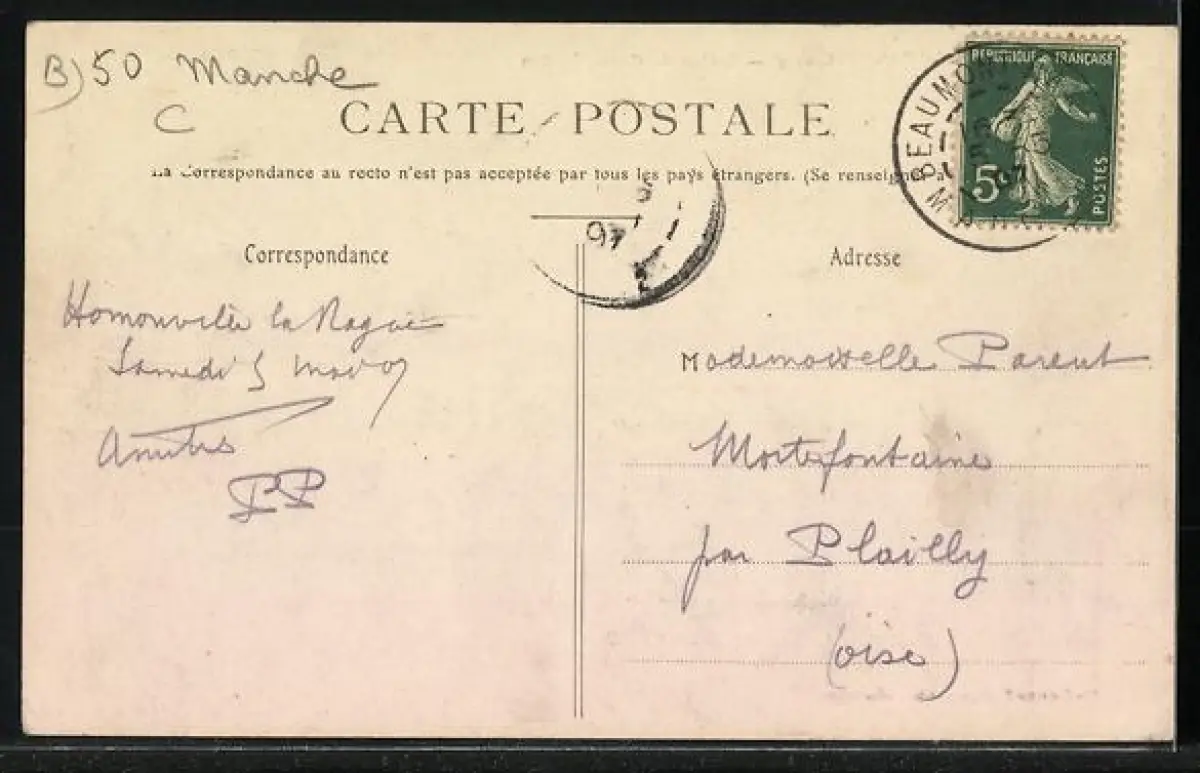 B) 50 Manche
C
CARTE POSTALE
La Correspondance au recto n'est pas acceptée par tous les pays étrangers. (Se renseigner à
REPUBLIQUE FRANÇAISE
5
POSTES
BEAUMONT
MANCHE
5
07
Correspondance
Adresse
Homonville la Rogue
Samedi 5 mai 07
Amitiés
PP
Mademoiselle Parent
Mortefontaine
par Plailly
(Oise)